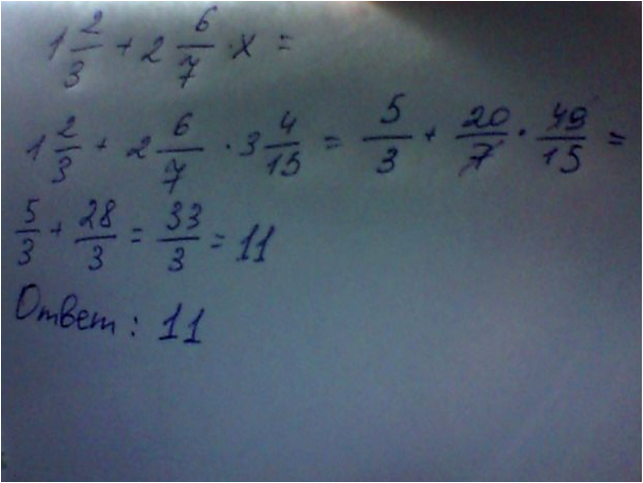 1 2/3 + 2 6/7 · x =
1 2/3 + 2 6/7 · 3 4/15 = 5/3 + 20/7 · 49/15 =
5/3 + 28/3 = 33/3 = 11
Ответ: 11